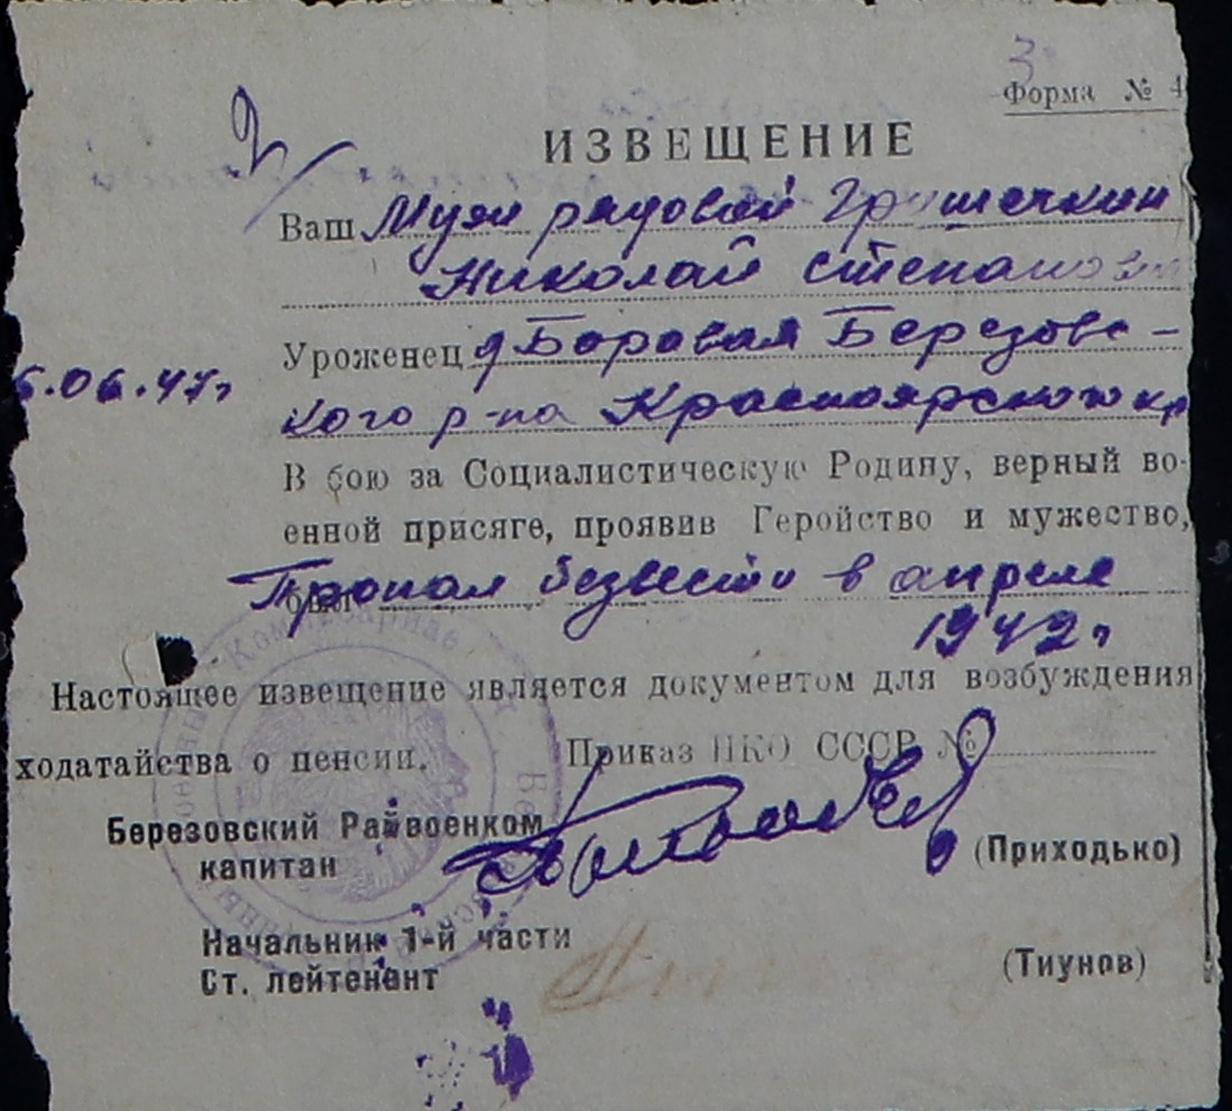 3
Форма № 4
2/
ИЗВЕЩЕНИЕ
Ваш Муж рядовой Гришечкин
Николай Степанович
Уроженец д Боровая Березовс-
6.06.47г
кого р-на Красноярского кр
В бою за Социалистическую Родину, верный во-
енной присяге, проявив Геройство и мужество,
Пропал безвести в апреле
1942г
Настоящее извещение является документом для возбуждения
ходатайства о пенсии. Приказ НКО СССР №
Березовский Райвоенком
капитан (Приходько)
Начальник 1-й части
Ст. лейтенант (Тиунов)